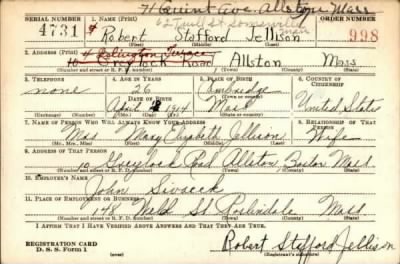 4 Quint Ave. Allston, Mass
SERIAL NUMBER 1. NAME (Print) ORDER NUMBER
62 St Somerville Mass
4731 Robert Stafford Jellison 998
(First) (Middle) (Last)
2. ADDRESS (Print)
4 Arlington Terrace
10 Greylock Road Allston Mass
(Number and street or R. F. D. number) (Town) (County) (State)
3. TELEPHONE 4. AGE IN YEARS 5. PLACE OF BIRTH 6. COUNTRY OF CITIZENSHIP
none 26 Cambridge
DATE OF BIRTH (Town or county)
April 1914 Mass United States
(Exchange) (No.) (Mo.) (Day) (Yr.) (State or country)
7. NAME OF PERSON WHO WILL ALWAYS KNOW YOUR ADDRESS 8. RELATIONSHIP OF THAT PERSON
Mrs Mary Elizabeth Jellison Wife
(Mr., Mrs., Miss) (First) (Middle) (Last)
9. ADDRESS OF THAT PERSON
10 Greylock Road Allston Boston Mass
(Number and street or R. F. D. number) (Town) (County) (State)
10. EMPLOYER'S NAME
John
11. PLACE OF EMPLOYMENT OR BUSINESS
148 St. Roslindale Mass
(Number and street or R. F. D. number) (Town) (County) (State)
I AFFIRM THAT I HAVE VERIFIED ABOVE ANSWERS AND THAT THEY ARE TRUE.
REGISTRATION CARD
D. S. S. Form 1
Robert Stafford Jellison
(Registrant's signature)